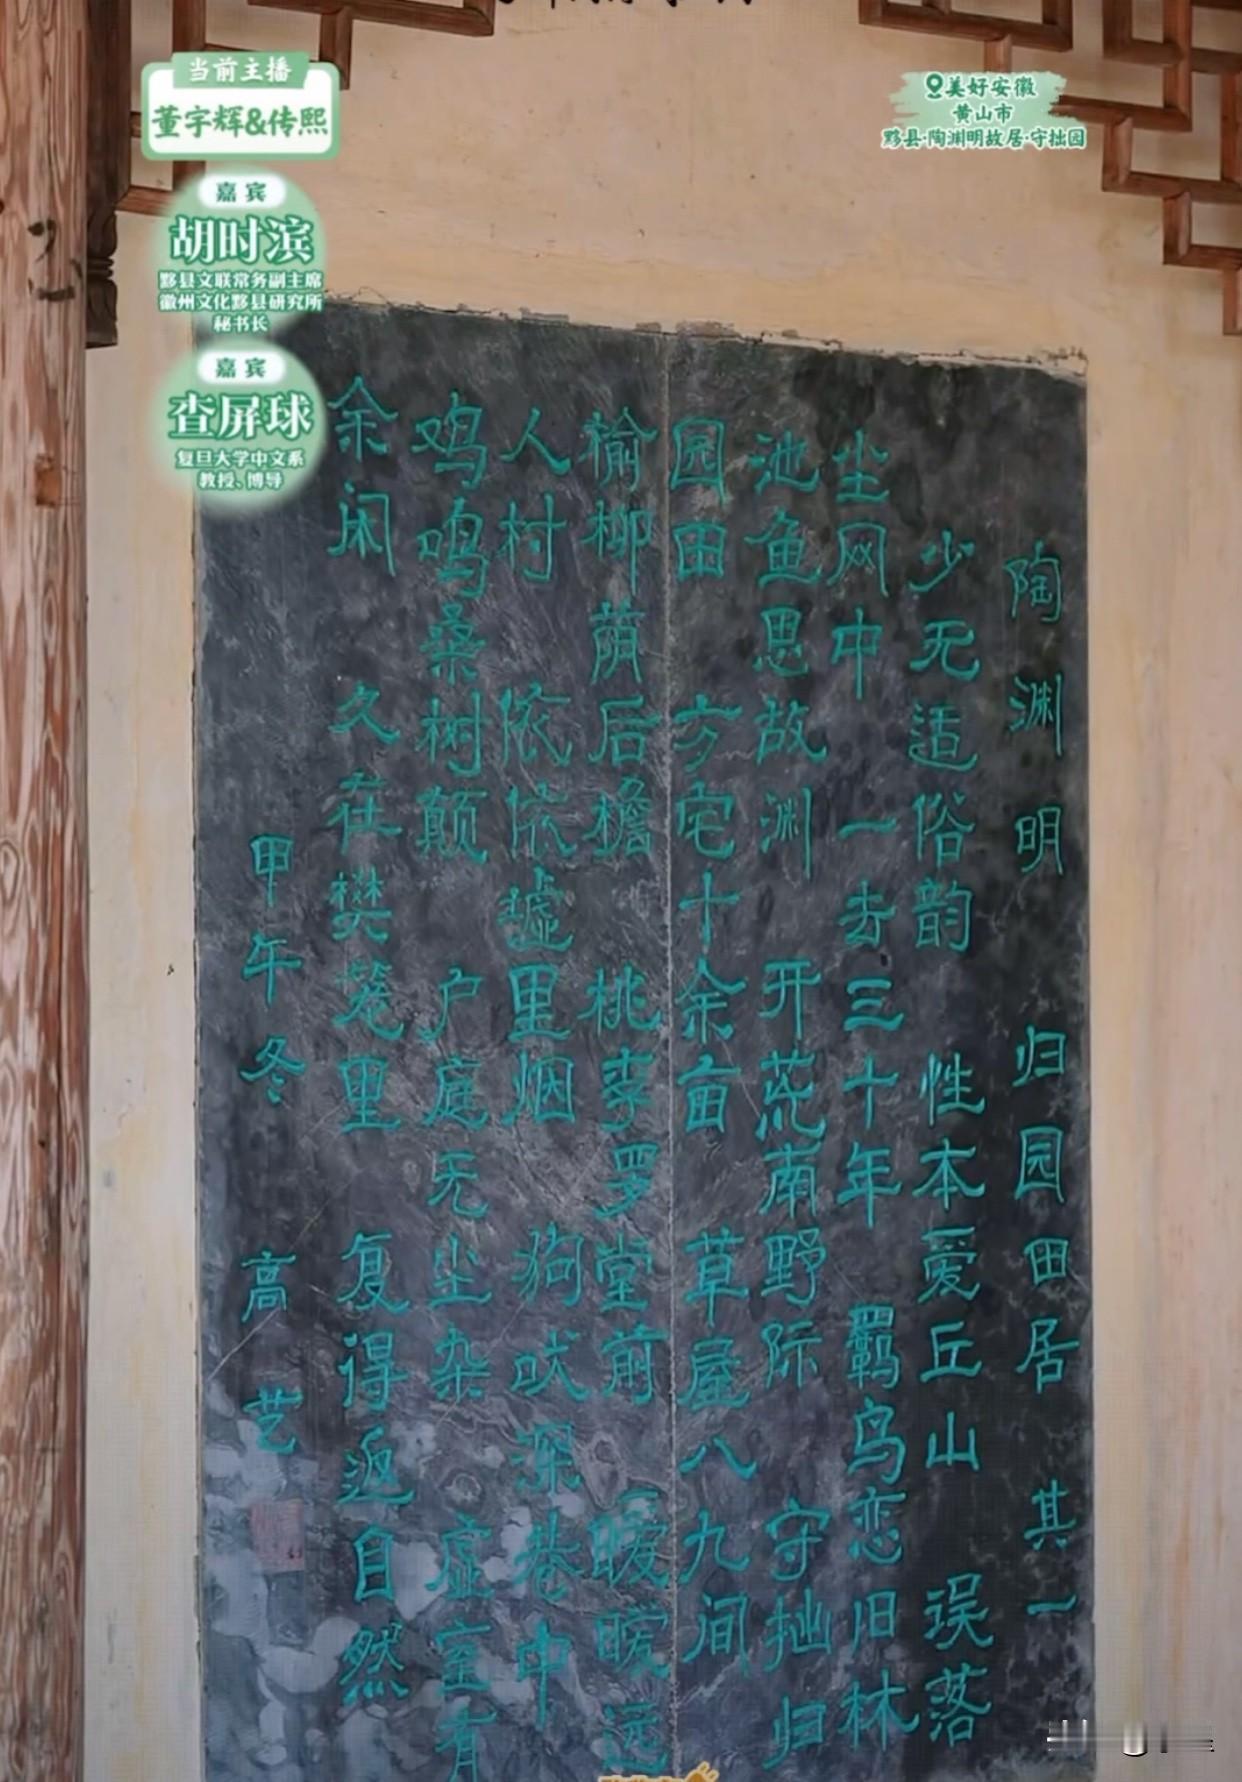 当前主播
董宇辉&传熙
嘉宾
胡时滨
黟县文联常务副主席
徽州文化黟县研究所
秘书长
嘉宾
查屏球
复旦大学中文系
教授、博导
美好安徽
黄山市
黟县·陶渊明故居·守拙园
陶渊明 归园田居 其一
少无适俗韵 性本爱丘山 误落
尘网中 一去三十年 羁鸟恋旧林
池鱼思故渊 开荒南野际 守拙归
园田 方宅十余亩 草屋八九间
榆柳荫后檐 桃李罗堂前 暧暧远
人村 依依墟里烟 狗吠深巷中
鸡鸣桑树颠 户庭无尘杂 虚室有
余闲 久在樊笼里 复得返自然
甲午冬 高艺